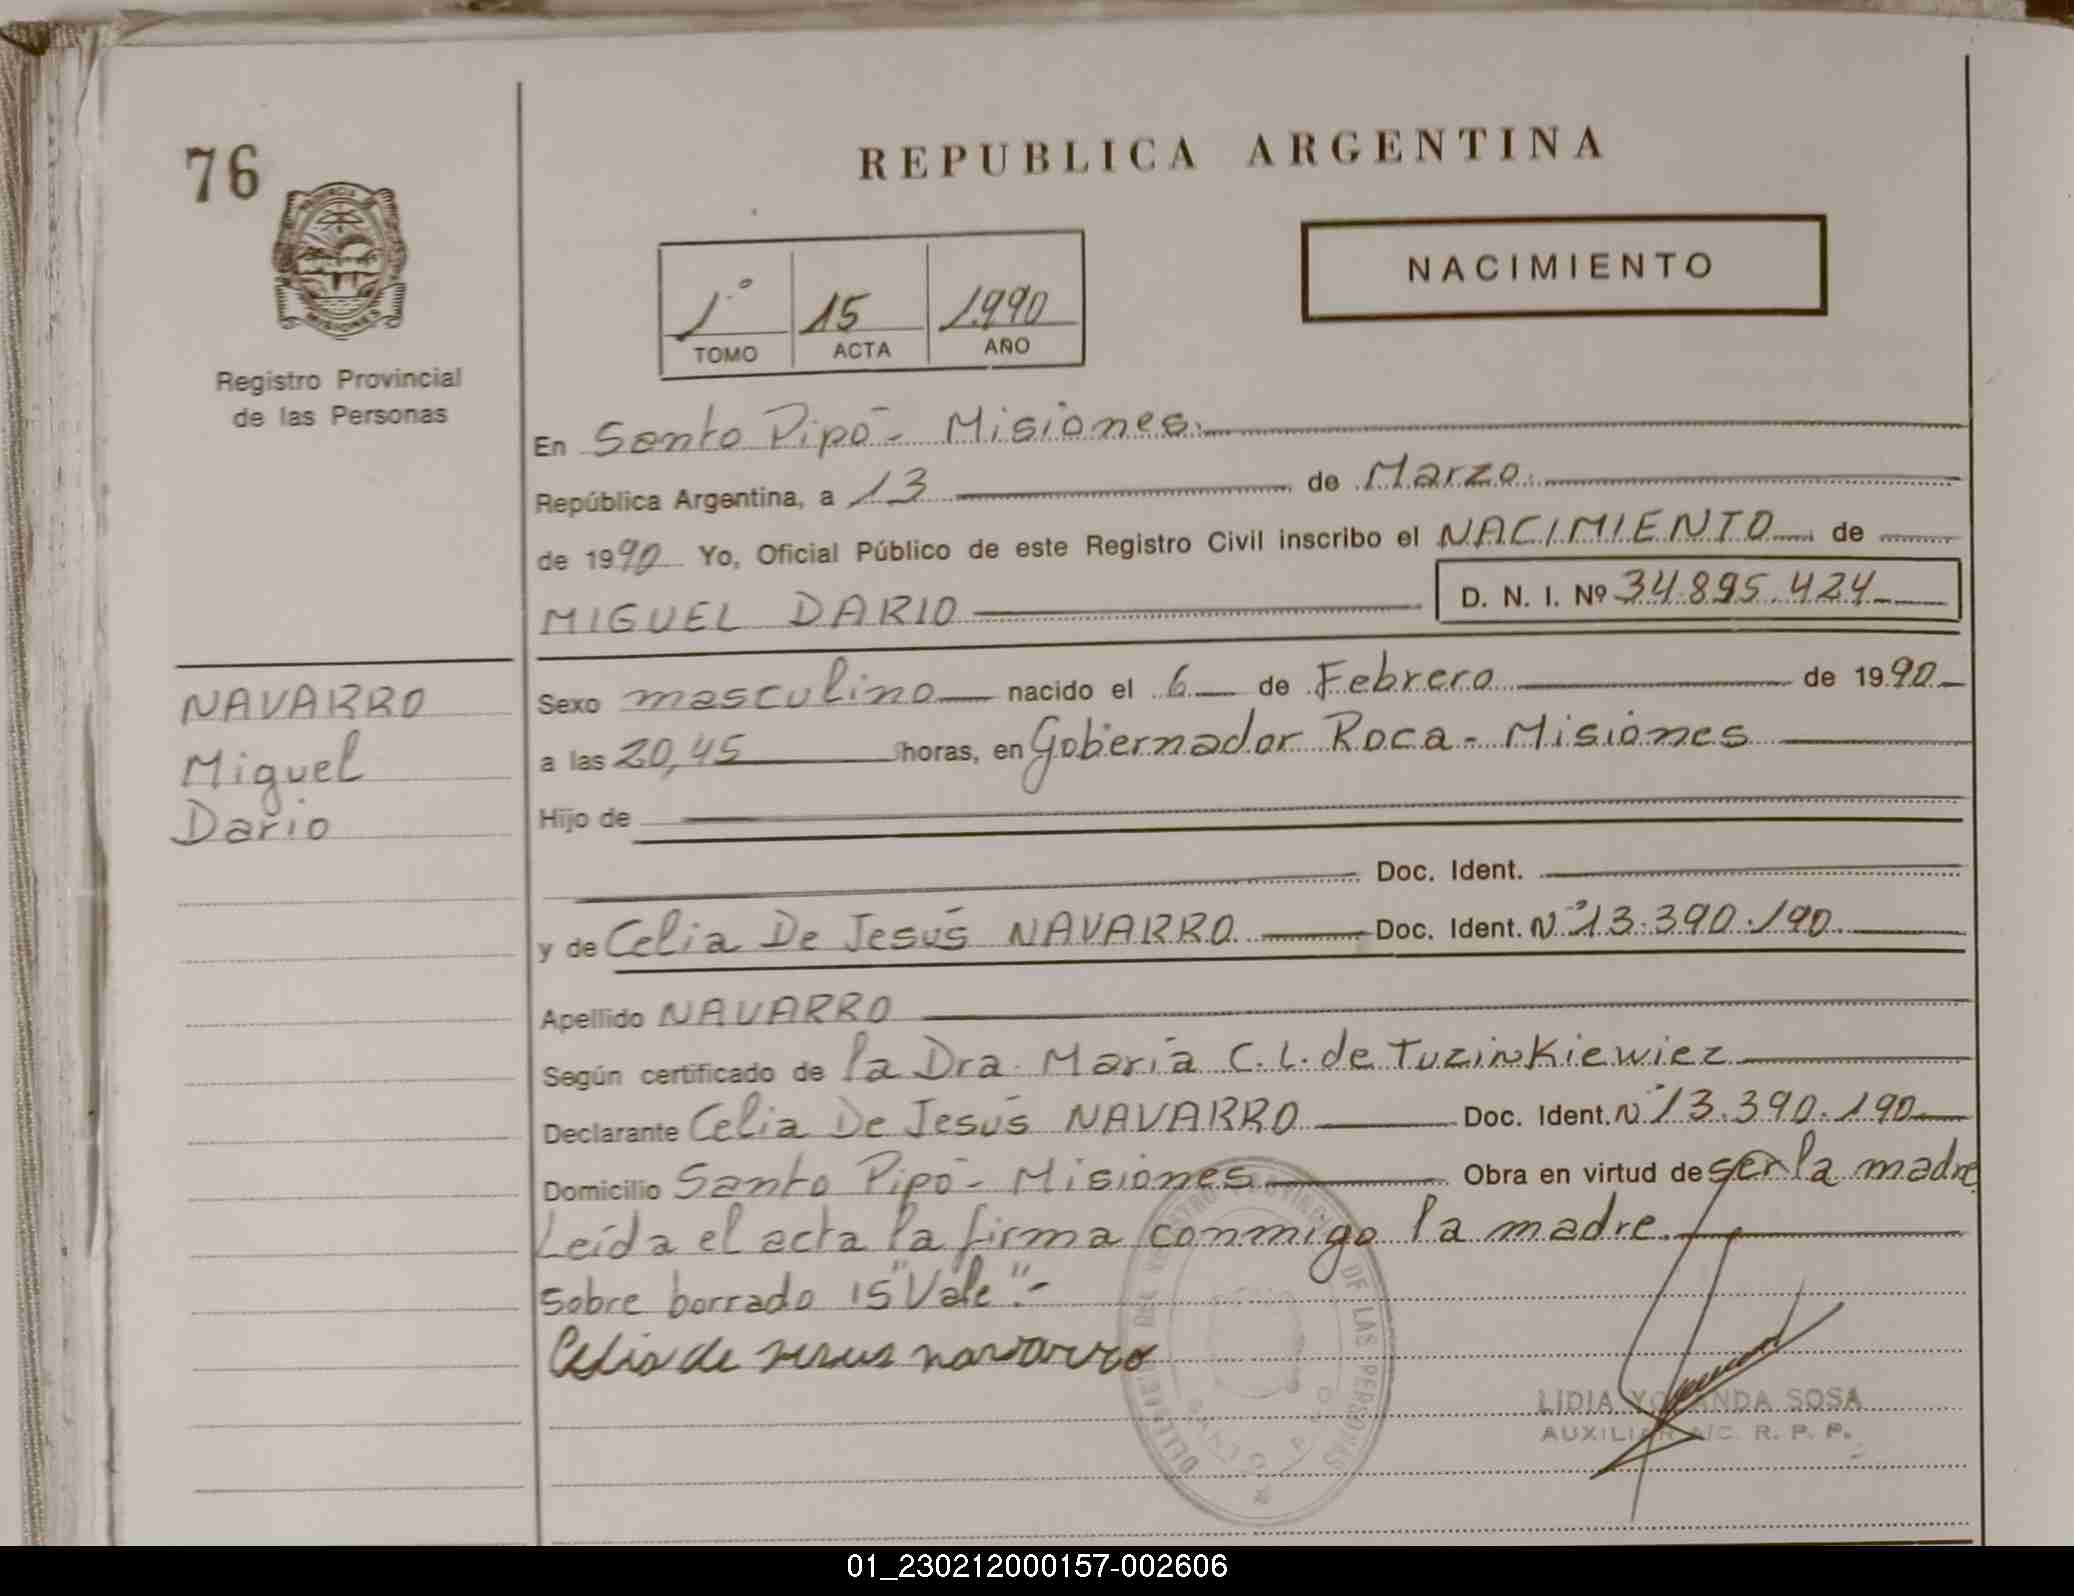 76
REPUBLICA ARGENTINA
PROVINCIA DE
MISIONES
NACIMIENTO
1.º 15 1.990
TOMO ACTA AÑO
Registro Provincial
de las Personas
En Santo Pipó - Misiones.
República Argentina, a 13 de Marzo.
de 1990 Yo, Oficial Público de este Registro Civil inscribo el NACIMIENTO de
MIGUEL DARIO D. N. I. Nº 34.895.424
NAVARRO
Miguel
Dario
Sexo masculino nacido el 6 de Febrero de 1990
a las 20,45 horas, en Gobernador Roca - Misiones
Hijo de
Doc. Ident.
y de Celia De Jesús NAVARRO Doc. Ident. Nº 13.390.190
Apellido NAVARRO
Según certificado de la Dra. María C. L. de Tuzinkiewiez
Declarante Celia De Jesús NAVARRO Doc. Ident. Nº 13.390.190
Domicilio Santo Pipó - Misiones Obra en virtud de ser la madre
Leída el acta la firma conmigo la madre.
Sobre borrado 15 "Vale".-
Celia de Jesus navarro
DEL REGISTRO PROVINCIAL DE LAS PERSONAS
SANTO PIPO
LIDIA YOLANDA SOSA
AUXILIAR A/C. R. P. P.
01_230212000157-002606